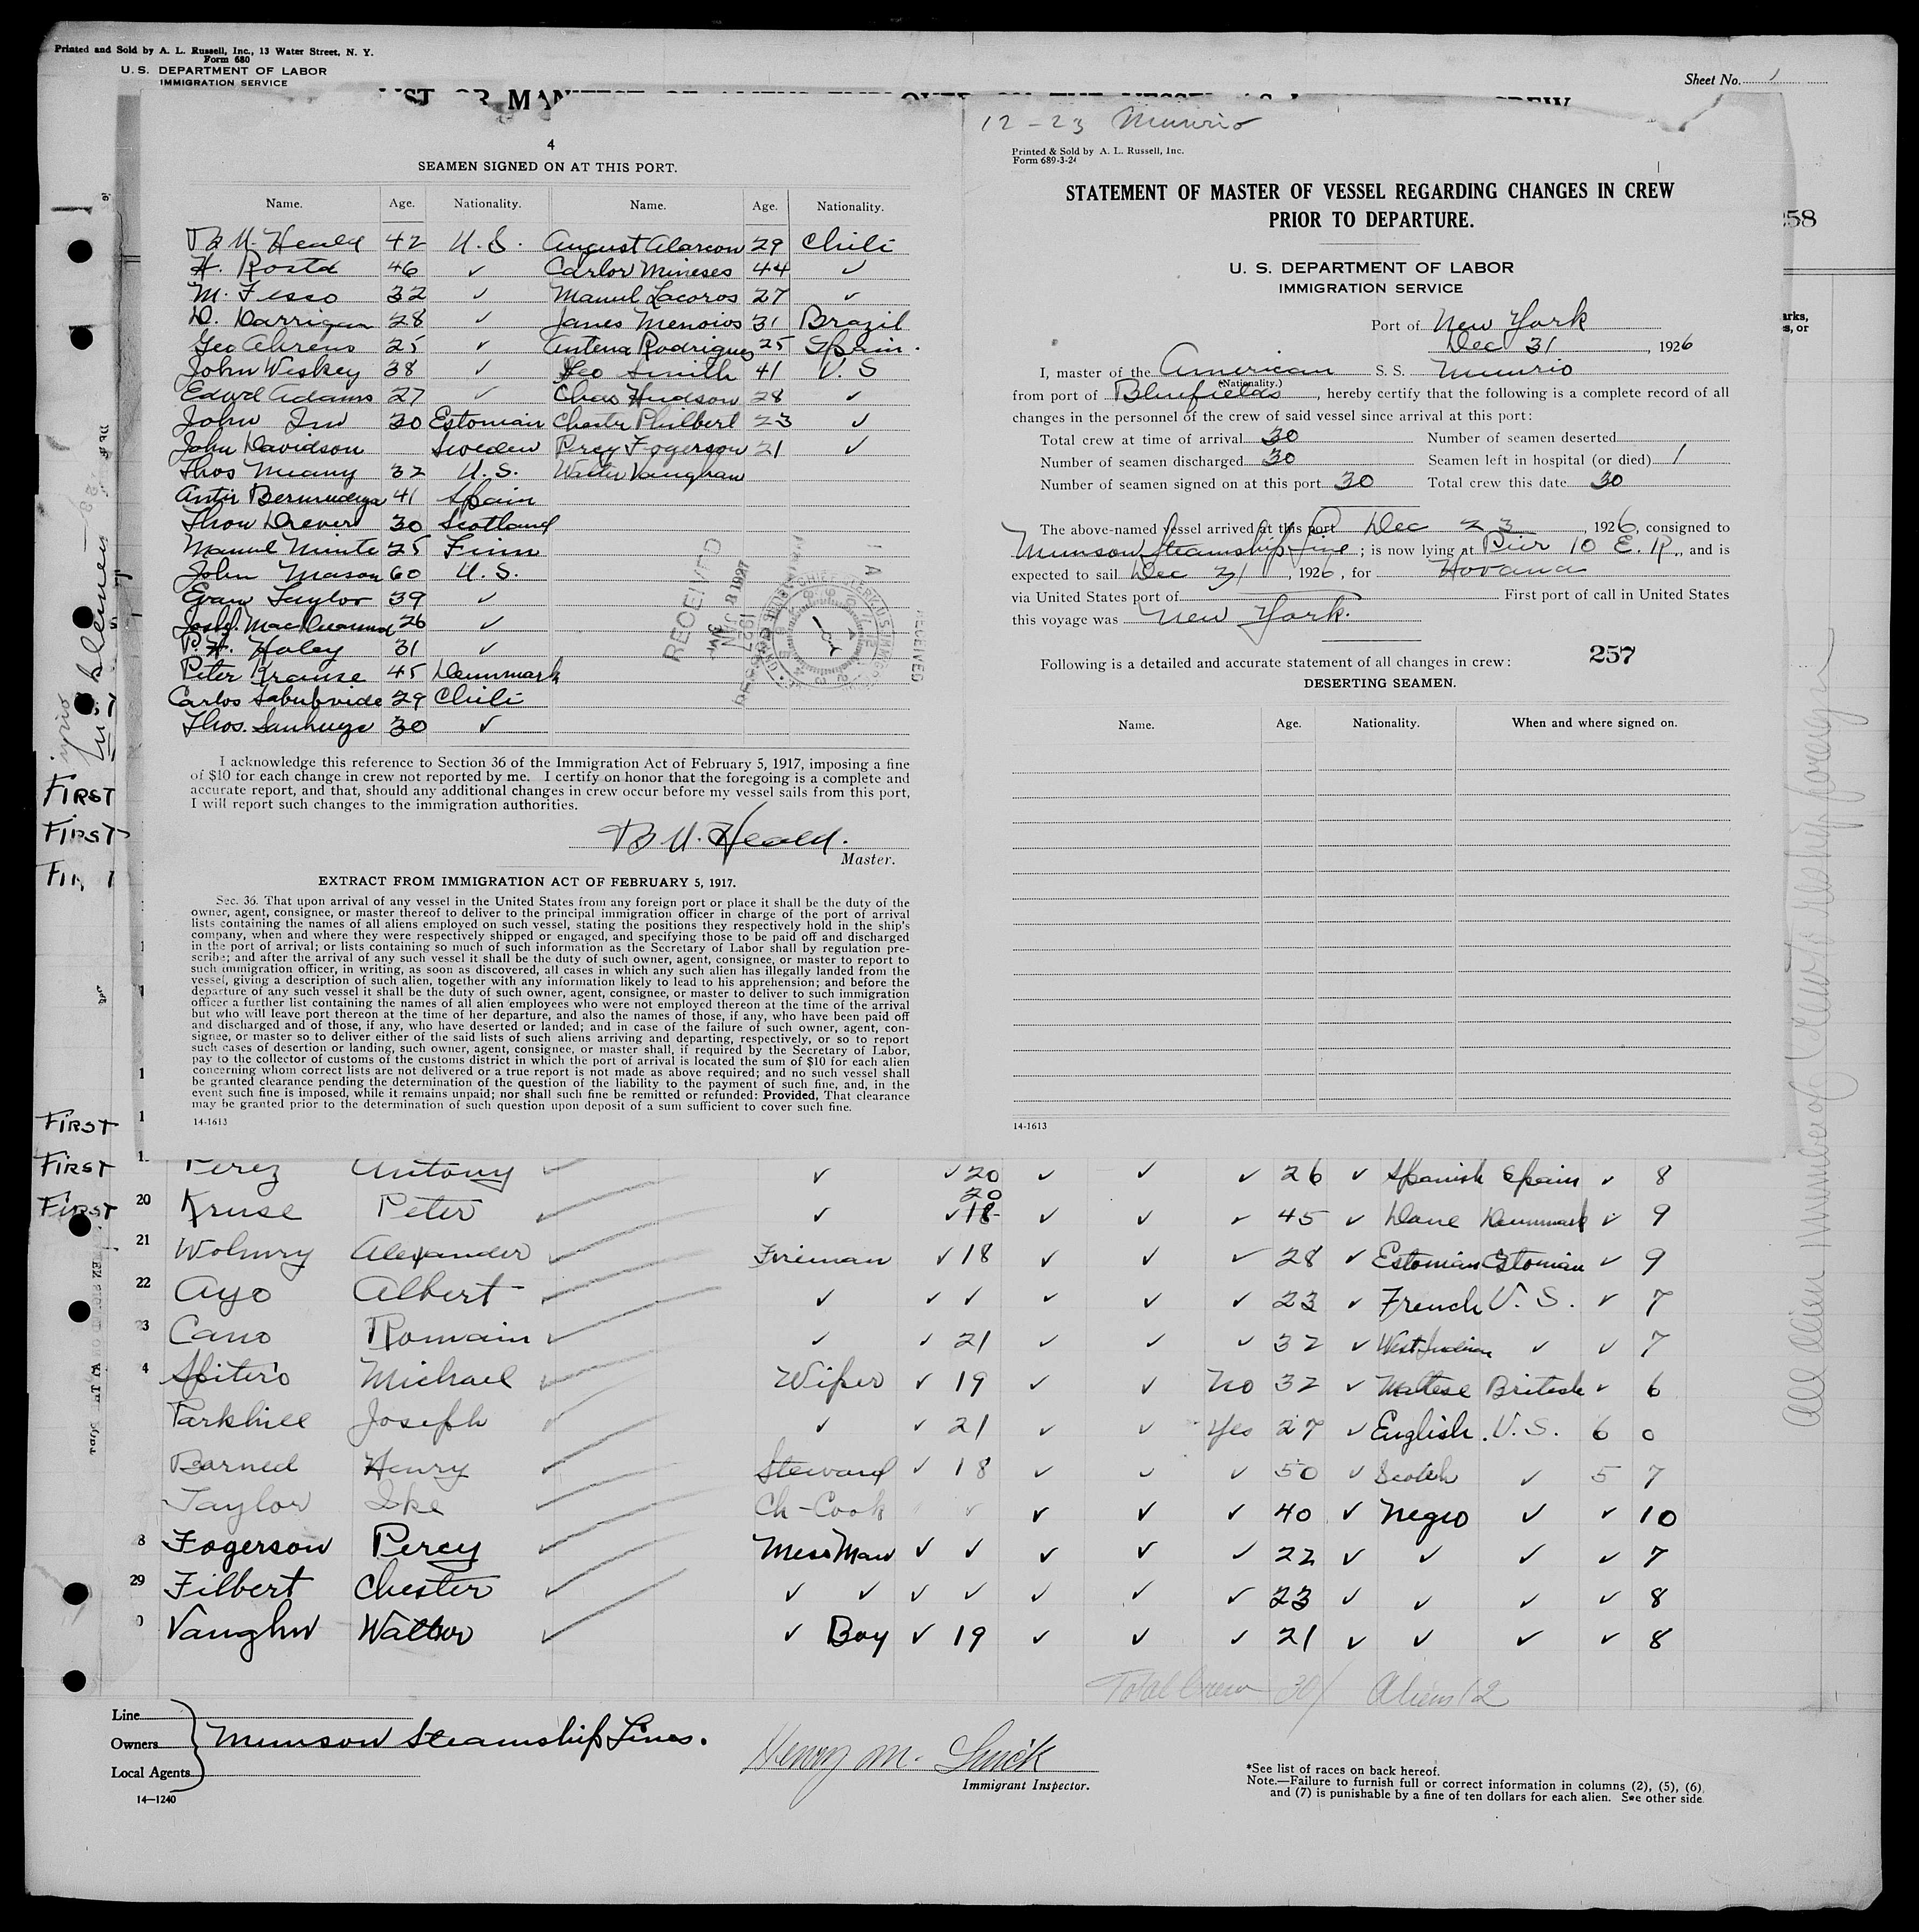 Printed and Sold by A. L. Russell, Inc., 13 Water Street, N. Y.
Form 680
U. S. DEPARTMENT OF LABOR
IMMIGRATION SERVICE
Sheet No. 1
4
SEAMEN SIGNED ON AT THIS PORT.
Name. Age. Nationality. Name. Age. Nationality.
B U. Heald 42 U. S. August Alarcon 29 Chili
H. Rosta 46 ✓ Carlos Mineses 44 ✓
M. Fesso 32 ✓ Manuel Lacoros 27 ✓
D. Darrigan 28 ✓ James Menoios 31 Brazil
Geo Ahrens 25 ✓ Antena Rodrigues 25 Spain.
John Weskey 38 ✓ Geo Smith 41 U. S
Edwd Adams 27 ✓ Chas Hudson 28 ✓
John 30 Estonian Chester Philbert 23 ✓
John Davidson Sweden Percy Fogerson 21 ✓
Thos Meany 32 U. S. Walter Vaughan
41 Spain
Thow Drever 30 Scotland
Manuel 25 Finn
John Mason 60 U. S.
Evan Taylor 39 ✓
26 ✓
P. H. Haley 31 ✓
Peter Krause 45 Dennmark
Carlos 29 Chili
Thos. 30 ✓
RECEIVED
JAN 3 1927
RECEIVED
I acknowledge this reference to Section 36 of the Immigration Act of February 5, 1917, imposing a fine
of $10 for each change in crew not reported by me. I certify on honor that the foregoing is a complete and
accurate report, and that, should any additional changes in crew occur before my vessel sails from this port,
I will report such changes to the immigration authorities.
B U. Heald.
Master.
EXTRACT FROM IMMIGRATION ACT OF FEBRUARY 5, 1917.
Sec. 36. That upon arrival of any vessel in the United States from any foreign port or place it shall be the duty of the
owner, agent, consignee, or master thereof to deliver to the principal immigration officer in charge of the port of arrival
lists containing the names of all aliens employed on such vessel, stating the positions they respectively hold in the ship's
company, when and where they were respectively shipped or engaged, and specifying those to be paid off and discharged
in the port of arrival; or lists containing so much of such information as the Secretary of Labor shall by regulation pre-
scribe; and after the arrival of any such vessel it shall be the duty of such owner, agent, consignee, or master to report to
such immigration officer, in writing, as soon as discovered, all cases in which any such alien has illegally landed from the
vessel, giving a description of such alien, together with any information likely to lead to his apprehension; and before the
departure of any such vessel it shall be the duty of such owner, agent, consignee, or master to deliver to such immigration
officer a further list containing the names of all alien employees who were not employed thereon at the time of the arrival
but who will leave port thereon at the time of her departure, and also the names of those, if any, who have been paid off
and discharged and of those, if any, who have deserted or landed; and in case of the failure of such owner, agent, con-
signee, or master so to deliver either of the said lists of such aliens arriving and departing, respectively, or so to report
such cases of desertion or landing, such owner, agent, consignee, or master shall, if required by the Secretary of Labor,
pay to the collector of customs of the customs district in which the port of arrival is located the sum of $10 for each alien
concerning whom correct lists are not delivered or a true report is not made as above required; and no such vessel shall
be granted clearance pending the determination of the question of the liability to the payment of such fine, and, in the
event such fine is imposed, while it remains unpaid; nor shall such fine be remitted or refunded: Provided, That clearance
may be granted prior to the determination of such question upon deposit of a sum sufficient to cover such fine.
14-1613
12-23 Munrio
Printed & Sold by A. L. Russell, Inc.
Form 689-3-24
STATEMENT OF MASTER OF VESSEL REGARDING CHANGES IN CREW
PRIOR TO DEPARTURE.
U. S. DEPARTMENT OF LABOR
IMMIGRATION SERVICE
Port of New York
Dec 31, 1926
I, master of the American S. S. Munrio
(Nationality.)
from port of Bluefields, hereby certify that the following is a complete record of all
changes in the personnel of the crew of said vessel since arrival at this port:
Total crew at time of arrival 30 Number of seamen deserted
Number of seamen discharged 30 Seamen left in hospital (or died) 1
Number of seamen signed on at this port 30 Total crew this date 30
The above-named vessel arrived at this port Dec 23, 1926, consigned to
Munson Steamship Line; is now lying at Pier 10 E. R., and is
expected to sail Dec 31, 1926, for Havana
via United States port of First port of call in United States
this voyage was New York.
257
Following is a detailed and accurate statement of all changes in crew:
DESERTING SEAMEN.
Name. Age. Nationality. When and where signed on.
14-1613
258
FIRST
FIRST
FIRST
FIRST
FIRST
Perez Antony ✓ ✓ ✓ 20 ✓ ✓ ✓ 26 ✓ Spanish Spain ✓ 8
FIRST
20 Kruse Peter ✓ ✓ ✓ 18 20 ✓ ✓ ✓ 45 ✓ Dane Dennmark ✓ 9
21 Wolmry Alexander ✓ Fireman ✓ 18 ✓ ✓ ✓ 28 ✓ Estonian Estonian ✓ 9
22 Ayo Albert ✓ ✓ ✓ ✓ ✓ ✓ ✓ 23 ✓ French U. S. ✓ 7
23 Cano Romain ✓ ✓ ✓ 21 ✓ ✓ ✓ 32 ✓ West Indian ✓ ✓ 7
4 Spitero Michael ✓ Wiper ✓ 19 ✓ ✓ No 32 ✓ Maltese British ✓ 6
Parkhill Joseph ✓ ✓ ✓ 21 ✓ ✓ Yes 27 ✓ English. U. S. 6 0
Barned Henry ✓ Steward ✓ 18 ✓ ✓ ✓ 50 ✓ Scotch ✓ 5 7
Taylor Ike ✓ Ch-Cook ✓ ✓ ✓ ✓ ✓ 40 ✓ Negro ✓ ✓ 10
8 Fogerson Percy ✓ Mess Man ✓ ✓ ✓ ✓ ✓ 22 ✓ ✓ ✓ ✓ 7
29 Filbert Chester ✓ ✓ ✓ ✓ ✓ ✓ ✓ ✓ 23 ✓ ✓ ✓ ✓ 8
0 Vaughn Walter ✓ ✓ Boy ✓ 19 ✓ ✓ ✓ 21 ✓ ✓ ✓ ✓ 8
Total Crew 30/ Aliens 12
Line
Owners Munson Steamship Lines.
Local Agents
14—1240
Henry M.
Immigrant Inspector.
*See list of races on back hereof.
Note.—Failure to furnish full or correct information in columns (2), (5), (6),
and (7) is punishable by a fine of ten dollars for each alien. See other side.
All alien members of crew to reship foreign